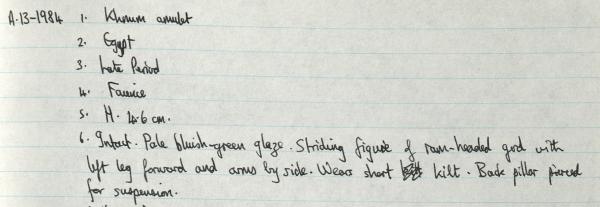 A.13-1984 1. Khnum amulet
2. Egypt
3. Late Period
4. Faience
5. H. 4.6 cm.
6. Intact. Pale bluish-green glaze. Striding figure of ram-headed god with
left leg forward and arms by side. Wears short kilt. Back pillar pierced
for suspension.